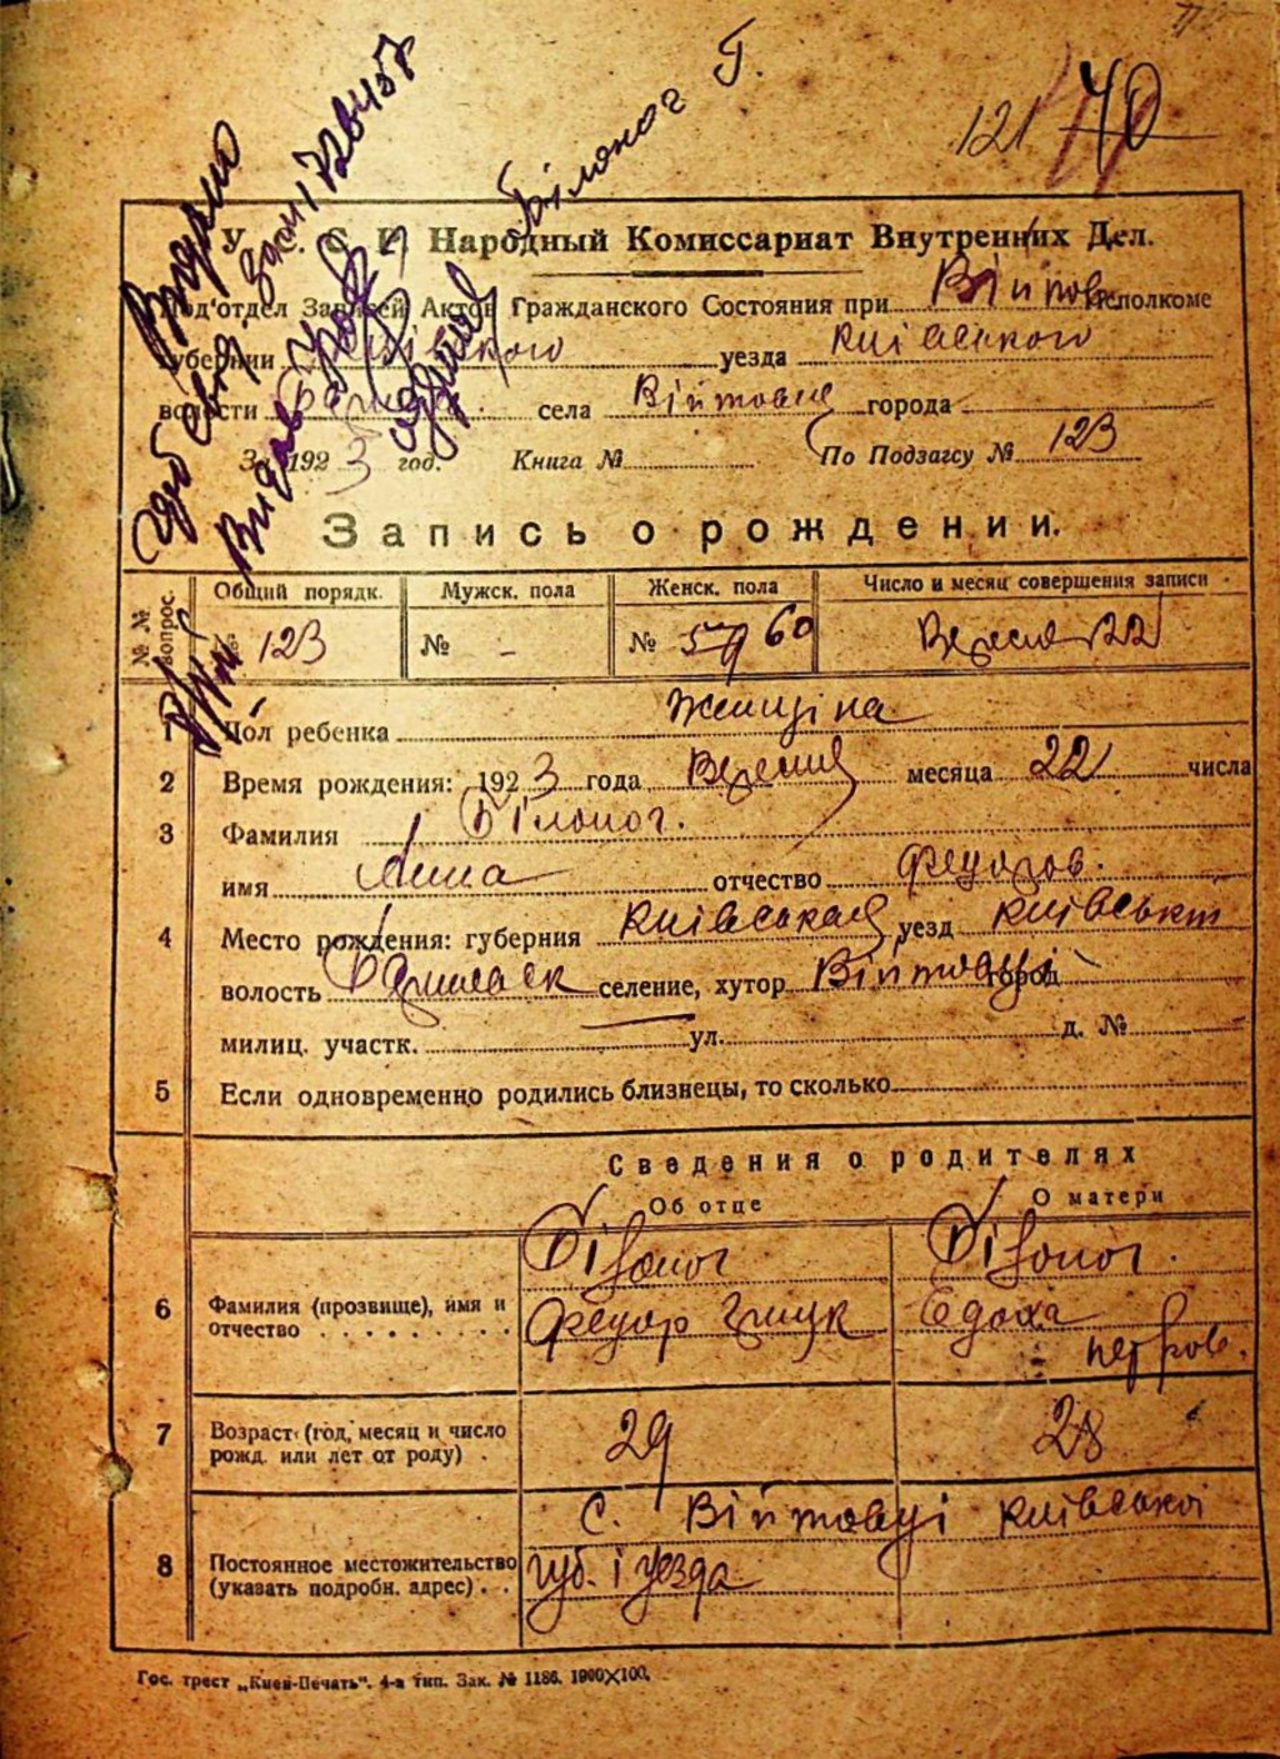 Білоног Г.
121 40
У. С. С. Р. Народный Комиссариат Внутренних Дел.
Под'отдел Записей Актов Гражданского Состояния при Війтов. Исполкоме
губернии Київського уезда Київського
волости села Війтовця города
За 1923 год. Книга № По Подзагсу № 123
Запись о рождении.
№ № вопрос. Общий порядк. Мужск. пола Женск. пола Число и месяц совершения записи
№ 123 № - № 59 60 Вересня 22
1 Пол ребенка Женщіна
2 Время рождения: 1923 года Вересня месяца 22 числа
3 Фамилия Білоног.
имя Анна отчество Федоров.
4 Место рождения: губерния Київская уезд Київськ
волость селение, хутор Війтовці город
милиц. участк. ул. д. №
5 Если одновременно родились близнецы, то сколько
Сведения о родителях
Об отце О матери
Білоног Білоног.
6 Фамилия (прозвище), имя и отчество Федор Грицк Едоха
петров.
7 Возраст (год, месяц и число рожд. или лет от роду) 29 28
С. Війтовці Київської
8 Постоянное местожительство (указать подробн. адрес) губ. і уезда
Гос. трест „Киев-Печать“. 4-я тип. Зак. № 1186. 1900×100.